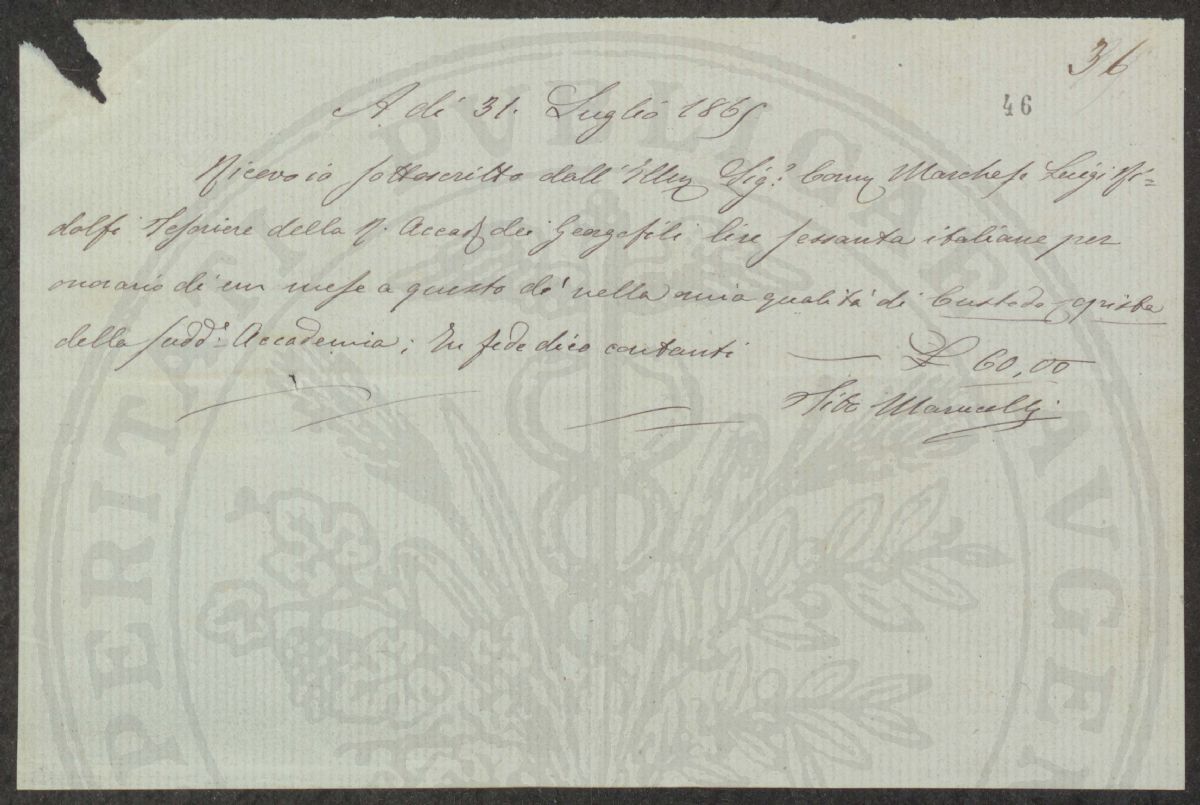 36
46
A dì 31. Luglio 1865
Ricevo io sottoscritto dall' Sig.r Marchese Luigi Ri=
dolfi Tesoriere della R. Accad. dei Georgofili lire sessanta italiane per
onorario di un mese a questo dì nella mia qualità di Custode copista
della sudd.a Accademia; In fede dico contanti — £ 60,00
Marucelli
PERITATI PVBLICAE AVGEN